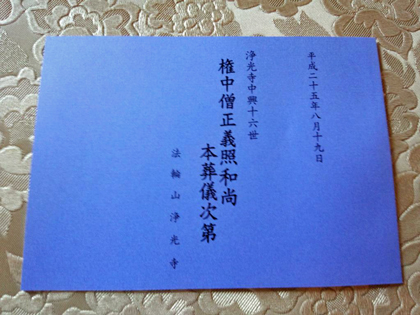 平成二十五年八月十九日
浄光寺中興十六世
権中僧正義照和尚
本葬儀次第
法輪山浄光寺